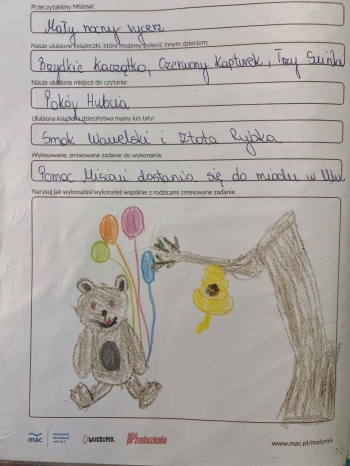 Przeczytaliśmy Misiowi:
Mały nocny rycerz
Nasze ulubione książeczki, które możemy polecić innym dzieciom:
Brzydkie Kaczątko, Czerwony Kapturek, Trzy Świnki
Nasze ulubione miejsce do czytania:
Pokój Hubcia
Ulubiona książka z dzieciństwa mamy lub taty:
Smok Wawelski i Złota Rybka
Wylosowane, zmisiowane zadanie do wykonania:
Pomoc Misiowi dostania się do miodu w Ulu
Narysuj jak wykonałaś/wykonałeś wspólnie z rodzicami zmisiowane zadanie.
mac
WIERCIPIĘTEK
Przedszkola
www.mac.pl/malymis